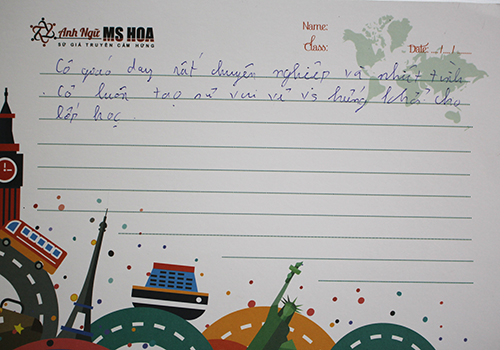 Anh Ngữ MS HOA
SỨ GIẢ TRUYỀN CẢM HỨNG
Name:
Class:
Date: ../../
Cô giáo dạy rất chuyên nghiệp và nhiệt tình
Cô luôn tạo sự vui vẻ và hứng khởi cho
lớp học.